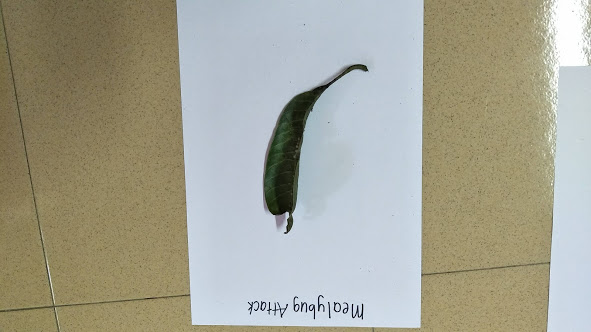 Mealybug Attack